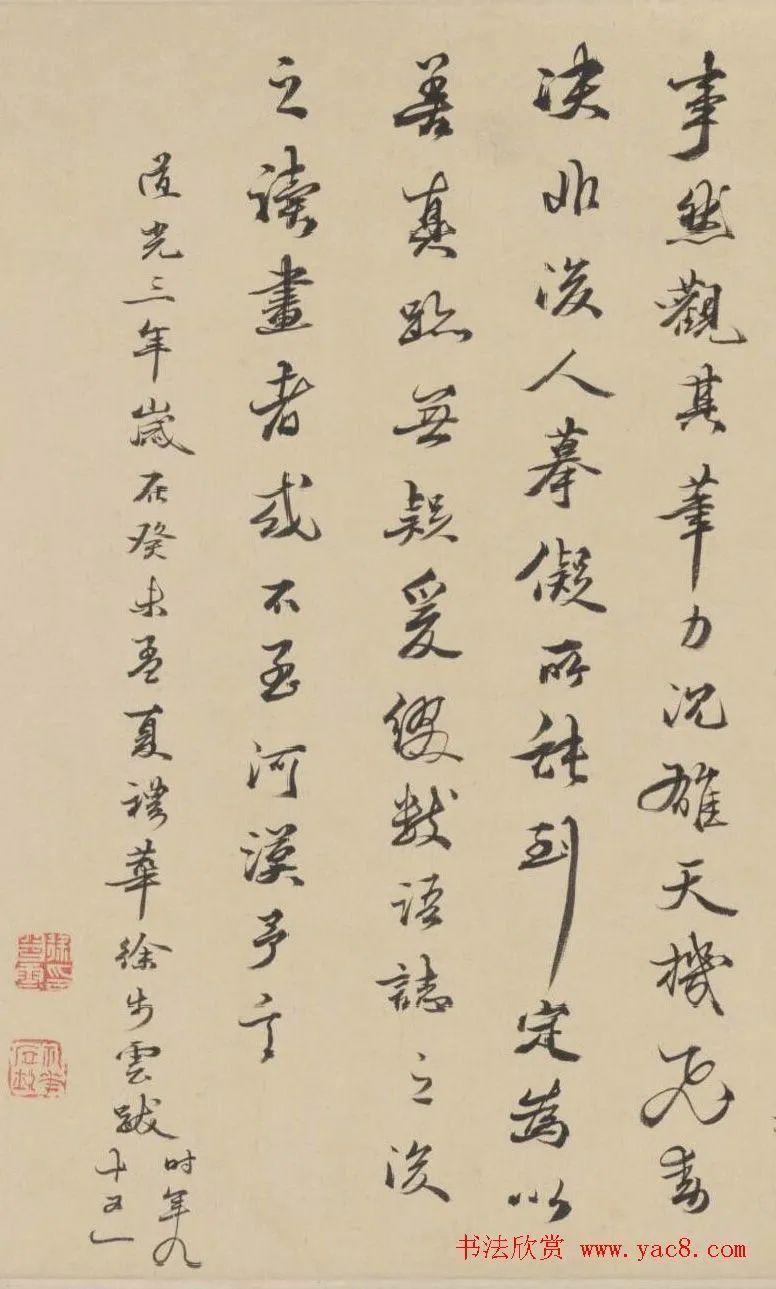 事然觀其筆力沉雄天機飛動
決非後人摹儗所能到定為以
善真跡無疑爰綴數語誌之後
之讀畫者或不至河漢予言
道光三年歲在癸未孟夏礫華徐步雲跋
時年九
十又一
书法欣赏 www.yac8.com